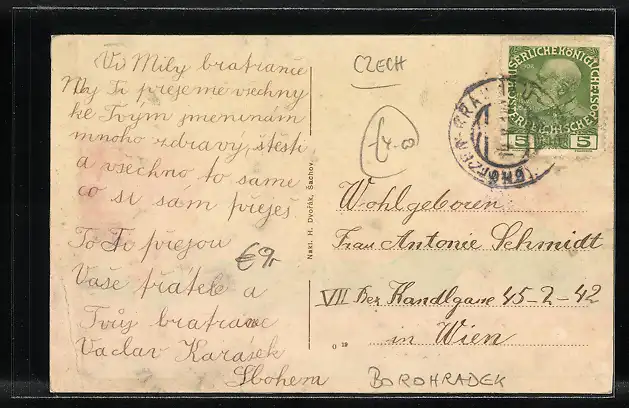 Vi Mily bratranče
My Ti přejeme všechny
ke Tvým jmeninám
mnoho zdravý, štěstí
a všechno to same
co si sám přeješ
To Ti přejou
Vaše přátele a
Tvůj bratranc
Vaclav Karásek
Sbohem
€9,-
Nakl. H. Dvořák, Šachov.
0 19
CZECH
£4-00
KAISERLICHE KÖNIGLICHE
ÖSTERREICHISCHE
5 5
Wohlgeboren
Frau Antonie Schmidt
VII Bez Kandlgane 45-2-42
in Wien
BOROHRADEK